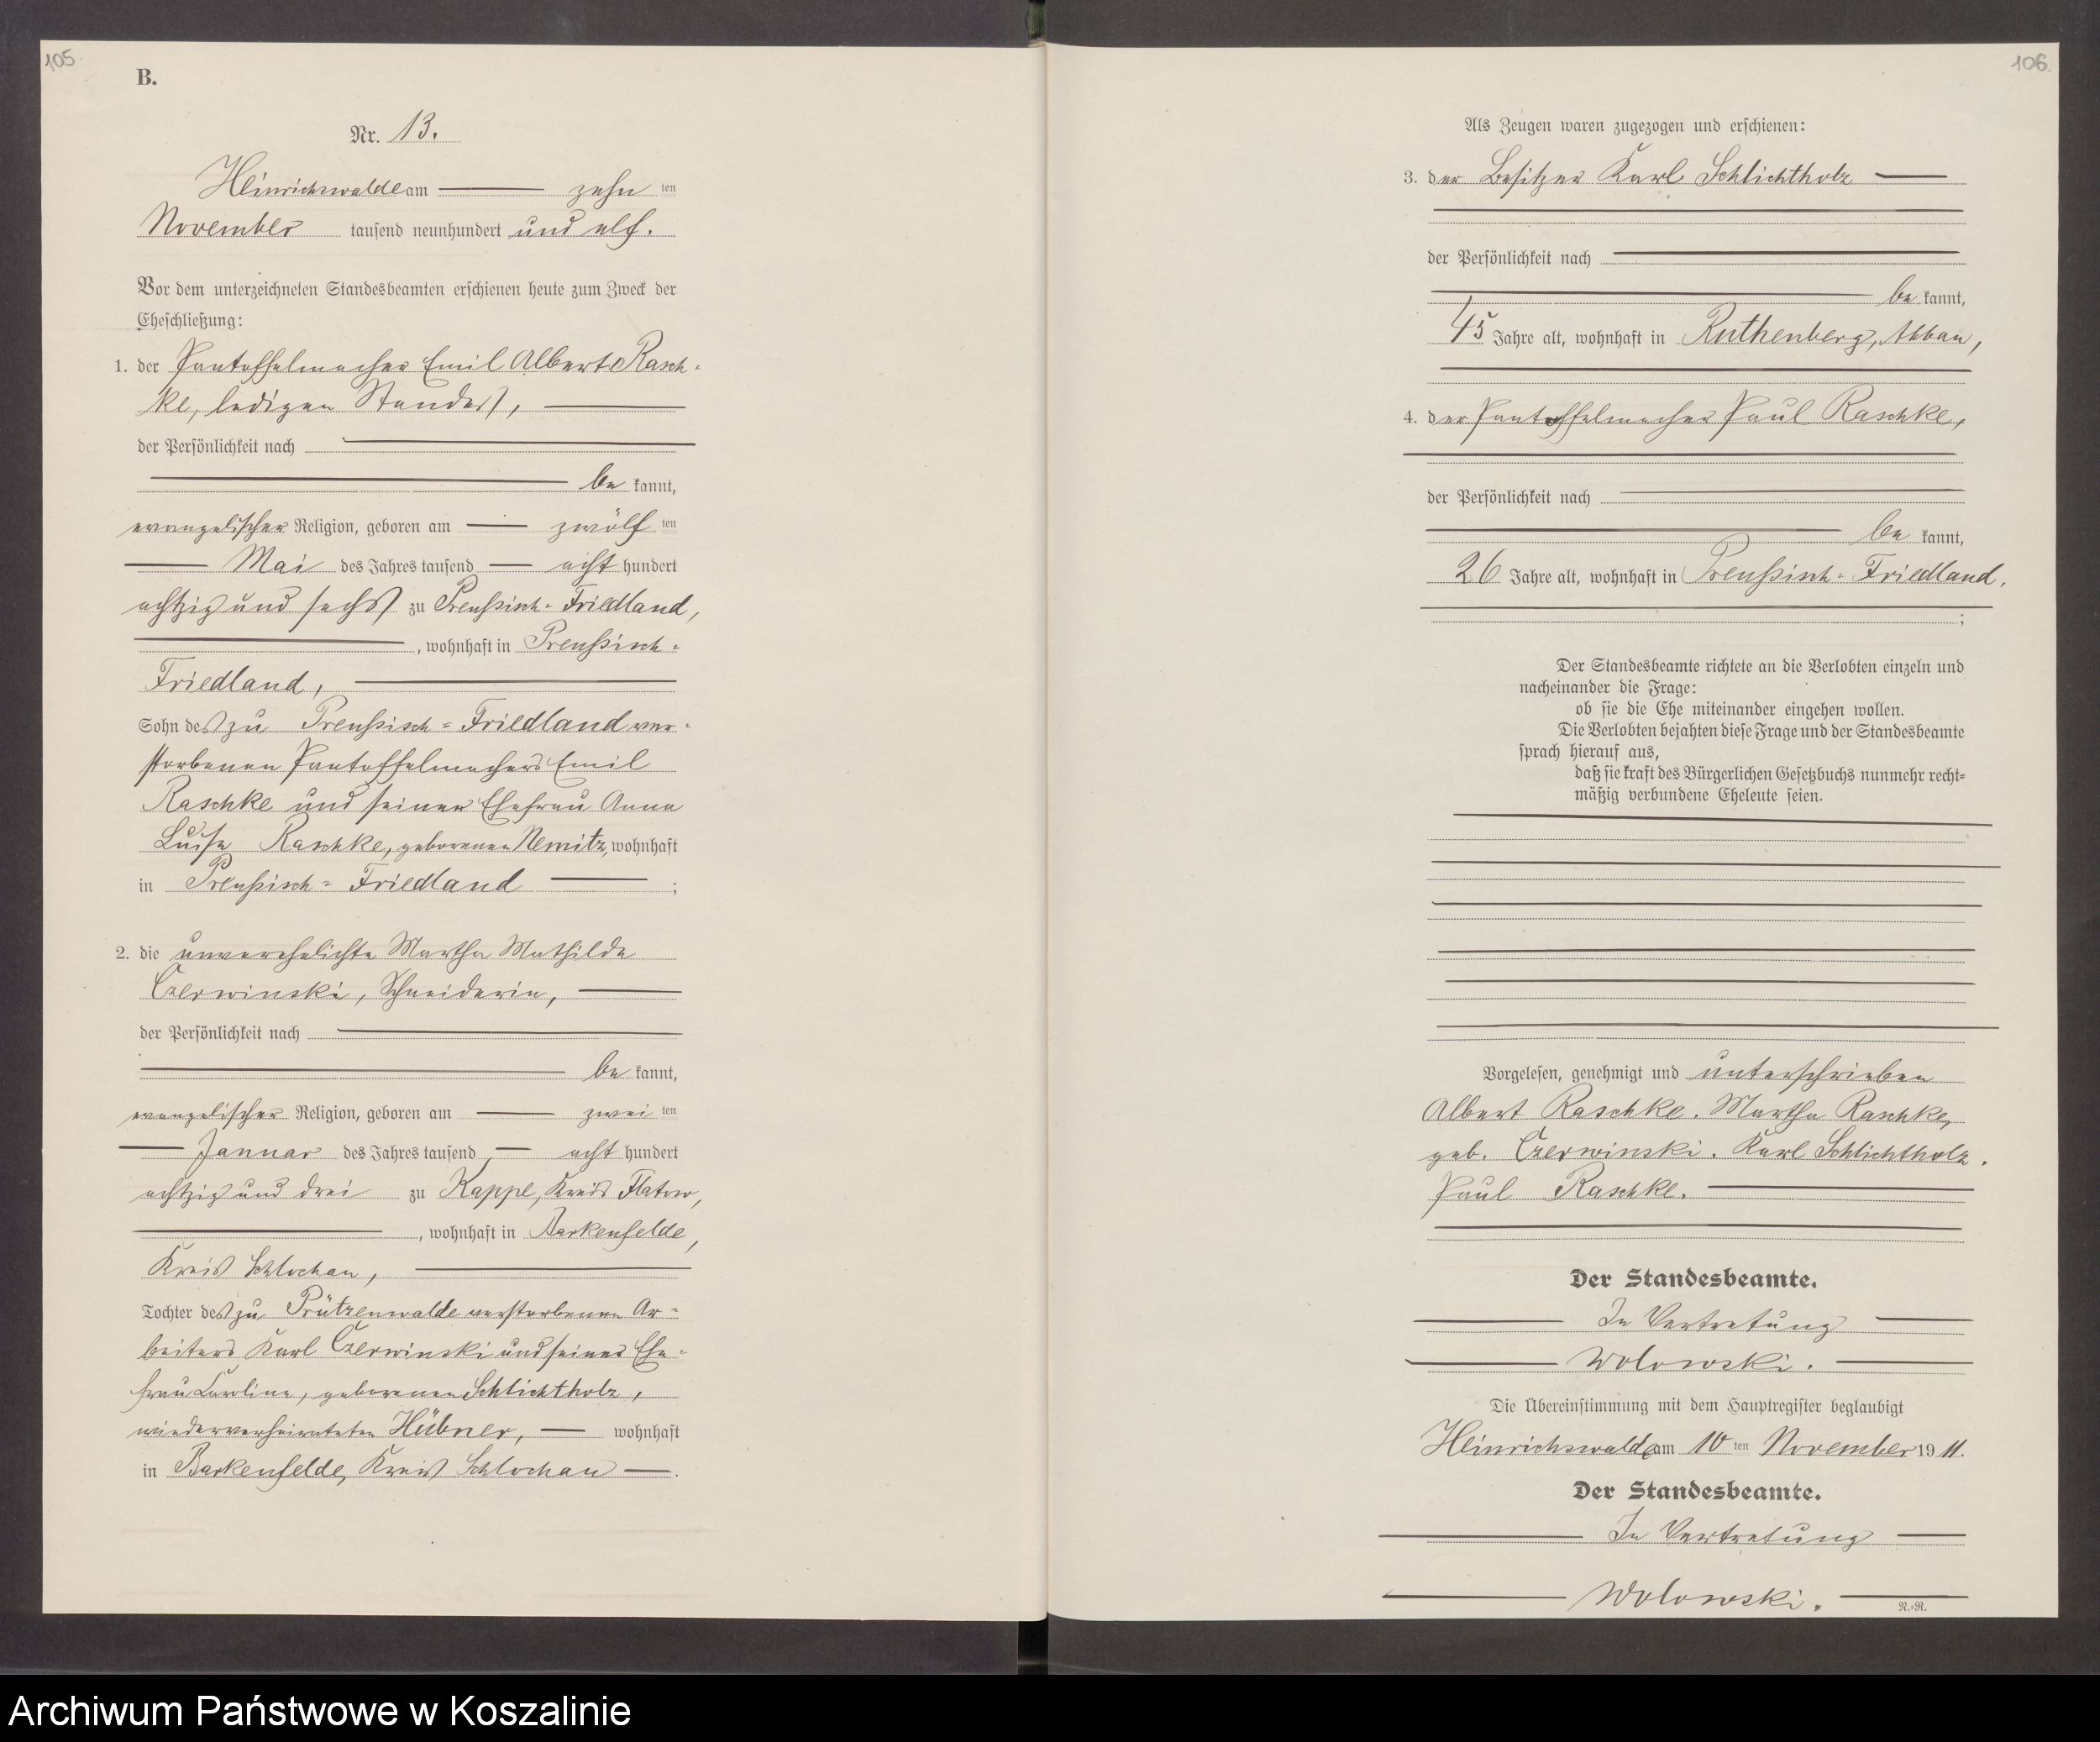 105.
B.
Nr. 13.
Heinrichswalde am zehn ten
November tausend neunhundert und elf.
Vor dem unterzeichneten Standesbeamten erschienen heute zum Zweck der
Eheschließung:
1. der Pantoffelmacher Emil Albert Rasch-
ke, ledigen Standes,
der Persönlichkeit nach
be kannt,
evangelischer Religion, geboren am zwölf ten
Mai des Jahres tausend acht hundert
achtzig und sechs zu Preußisch-Friedland,
, wohnhaft in Preußisch-
Friedland,
Sohn des zu Preußisch-Friedland ver-
storbenen Pantoffelmachers Emil
Raschke und seiner Ehefrau Anna
Luise Raschke, geborenen Nemitz, wohnhaft
in Preußisch-Friedland ;
2. die unverehelichte Martha Mathilde
Czerwinski, Schneiderin,
der Persönlichkeit nach
be kannt,
evangelischer Religion, geboren am zwei ten
Januar des Jahres tausend acht hundert
achtzig und drei zu Kappe, Kreis Flatow,
, wohnhaft in Barkenfelde,
Kreis Schlochau,
Tochter des zu Prützenwalde verstorbenen Ar-
beiters Karl Czerwinski und seiner Ehe-
frau Karoline, geborenen Schlichtholz,
wiederverheirateten Hübner, wohnhaft
in Barkenfelde, Kreis Schlochau .
106.
Als Zeugen waren zugezogen und erschienen:
3. der Besitzer Karl Schlichtholz
der Persönlichkeit nach
be kannt,
45 Jahre alt, wohnhaft in Ruthenberg, Abbau,
4. der Pantoffelmacher Paul Raschke,
der Persönlichkeit nach
be kannt,
26 Jahre alt, wohnhaft in Preußisch-Friedland.
;
Der Standesbeamte richtete an die Verlobten einzeln und
nacheinander die Frage:
ob sie die Ehe miteinander eingehen wollen.
Die Verlobten bejahten diese Frage und der Standesbeamte
sprach hierauf aus,
daß sie kraft des Bürgerlichen Gesetzbuchs nunmehr recht-
mäßig verbundene Eheleute seien.
Vorgelesen, genehmigt und unterschrieben
Albert Raschke. Martha Raschke,
geb. Czerwinski. Karl Schlichtholz.
Paul Raschke.
Der Standesbeamte.
In Vertretung
Wolowski.
Die Übereinstimmung mit dem Hauptregister beglaubigt
Heinrichswalde am 10 ten November 19 11.
Der Standesbeamte.
In Vertretung
Wolowski.
N.-R.
Archiwum Państwowe w Koszalinie